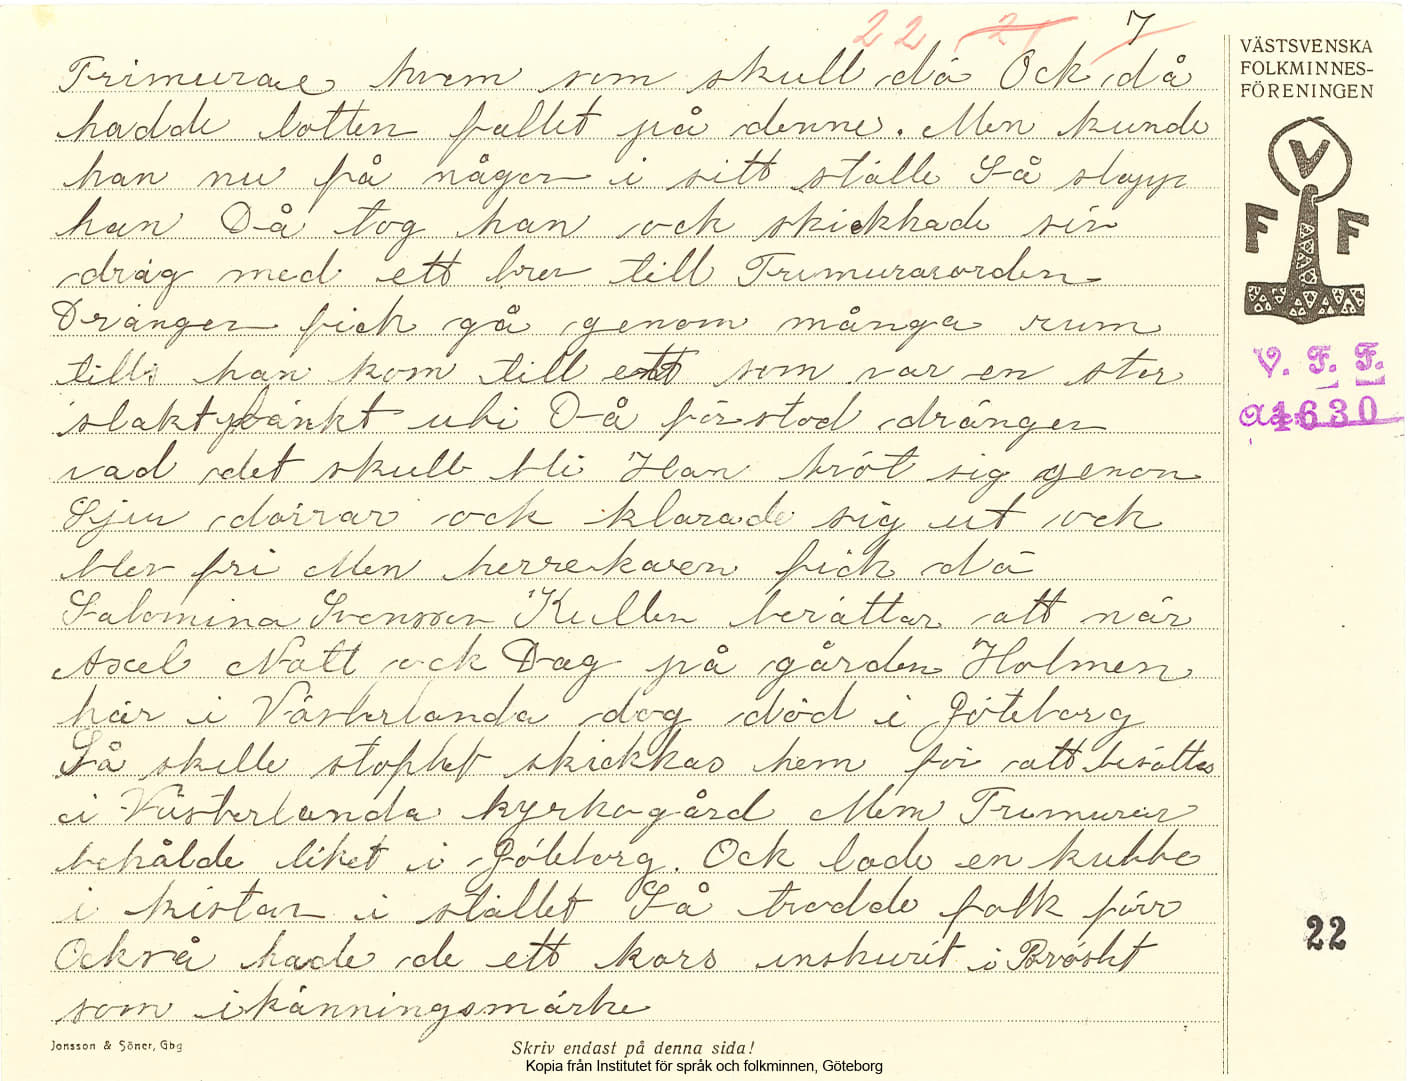 22 21 7
Frimurare hvem som skull dö Ock då
hadde lotten fallet på denne. Men kunde
han nu få någon i sitt ställe Så slapp
han Då tog han ock skickkade sin
dräg med ett brev till Frimurarorden
Drängen fick gå genom många rum
tills han kom till ett som var en stor
slaktbänkt uti Då förstod drängen
vad det skulle bli Han bröt sig genon
Sju dörrar ock klarade sig ut ock
blev fri Men herrekaren fick dö
Salomina Svensson Kullen berättar att när
Axel Natt ock Dag på gården Holmen
här i Västerlanda dog död i Göteborg
Så skulle stophet skickkas hem för att besättas
i Västerlanda kyrkogård Mem Frimurar
behålde liket i Göteborg. Ock lade en kubbe
i kistan i stället Så trodde folk förr
Också hade de ett kors inskurit i Bröskt
som ikänningsmärke
VÄSTSVENSKA
FOLKMINNES-
FÖRENINGEN
V
F F
V. F. F.
1630
22
Jonsson & Söner, Gbg
Skriv endast på denna sida!
Kopia från Institutet för språk och folkminnen, Göteborg